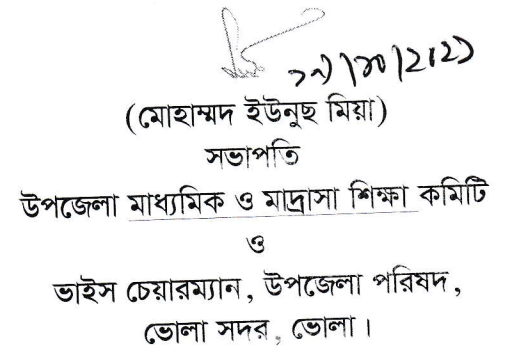 (মোহাম্মদ ইউনুছ মিয়া)
সভাপতি
উপজেলা মাধ্যমিক ও মাদ্রাসা শিক্ষা কমিটি
ও
ভাইস চেয়ারম্যান, উপজেলা পরিষদ,
ভোলা সদর, ভোলা।